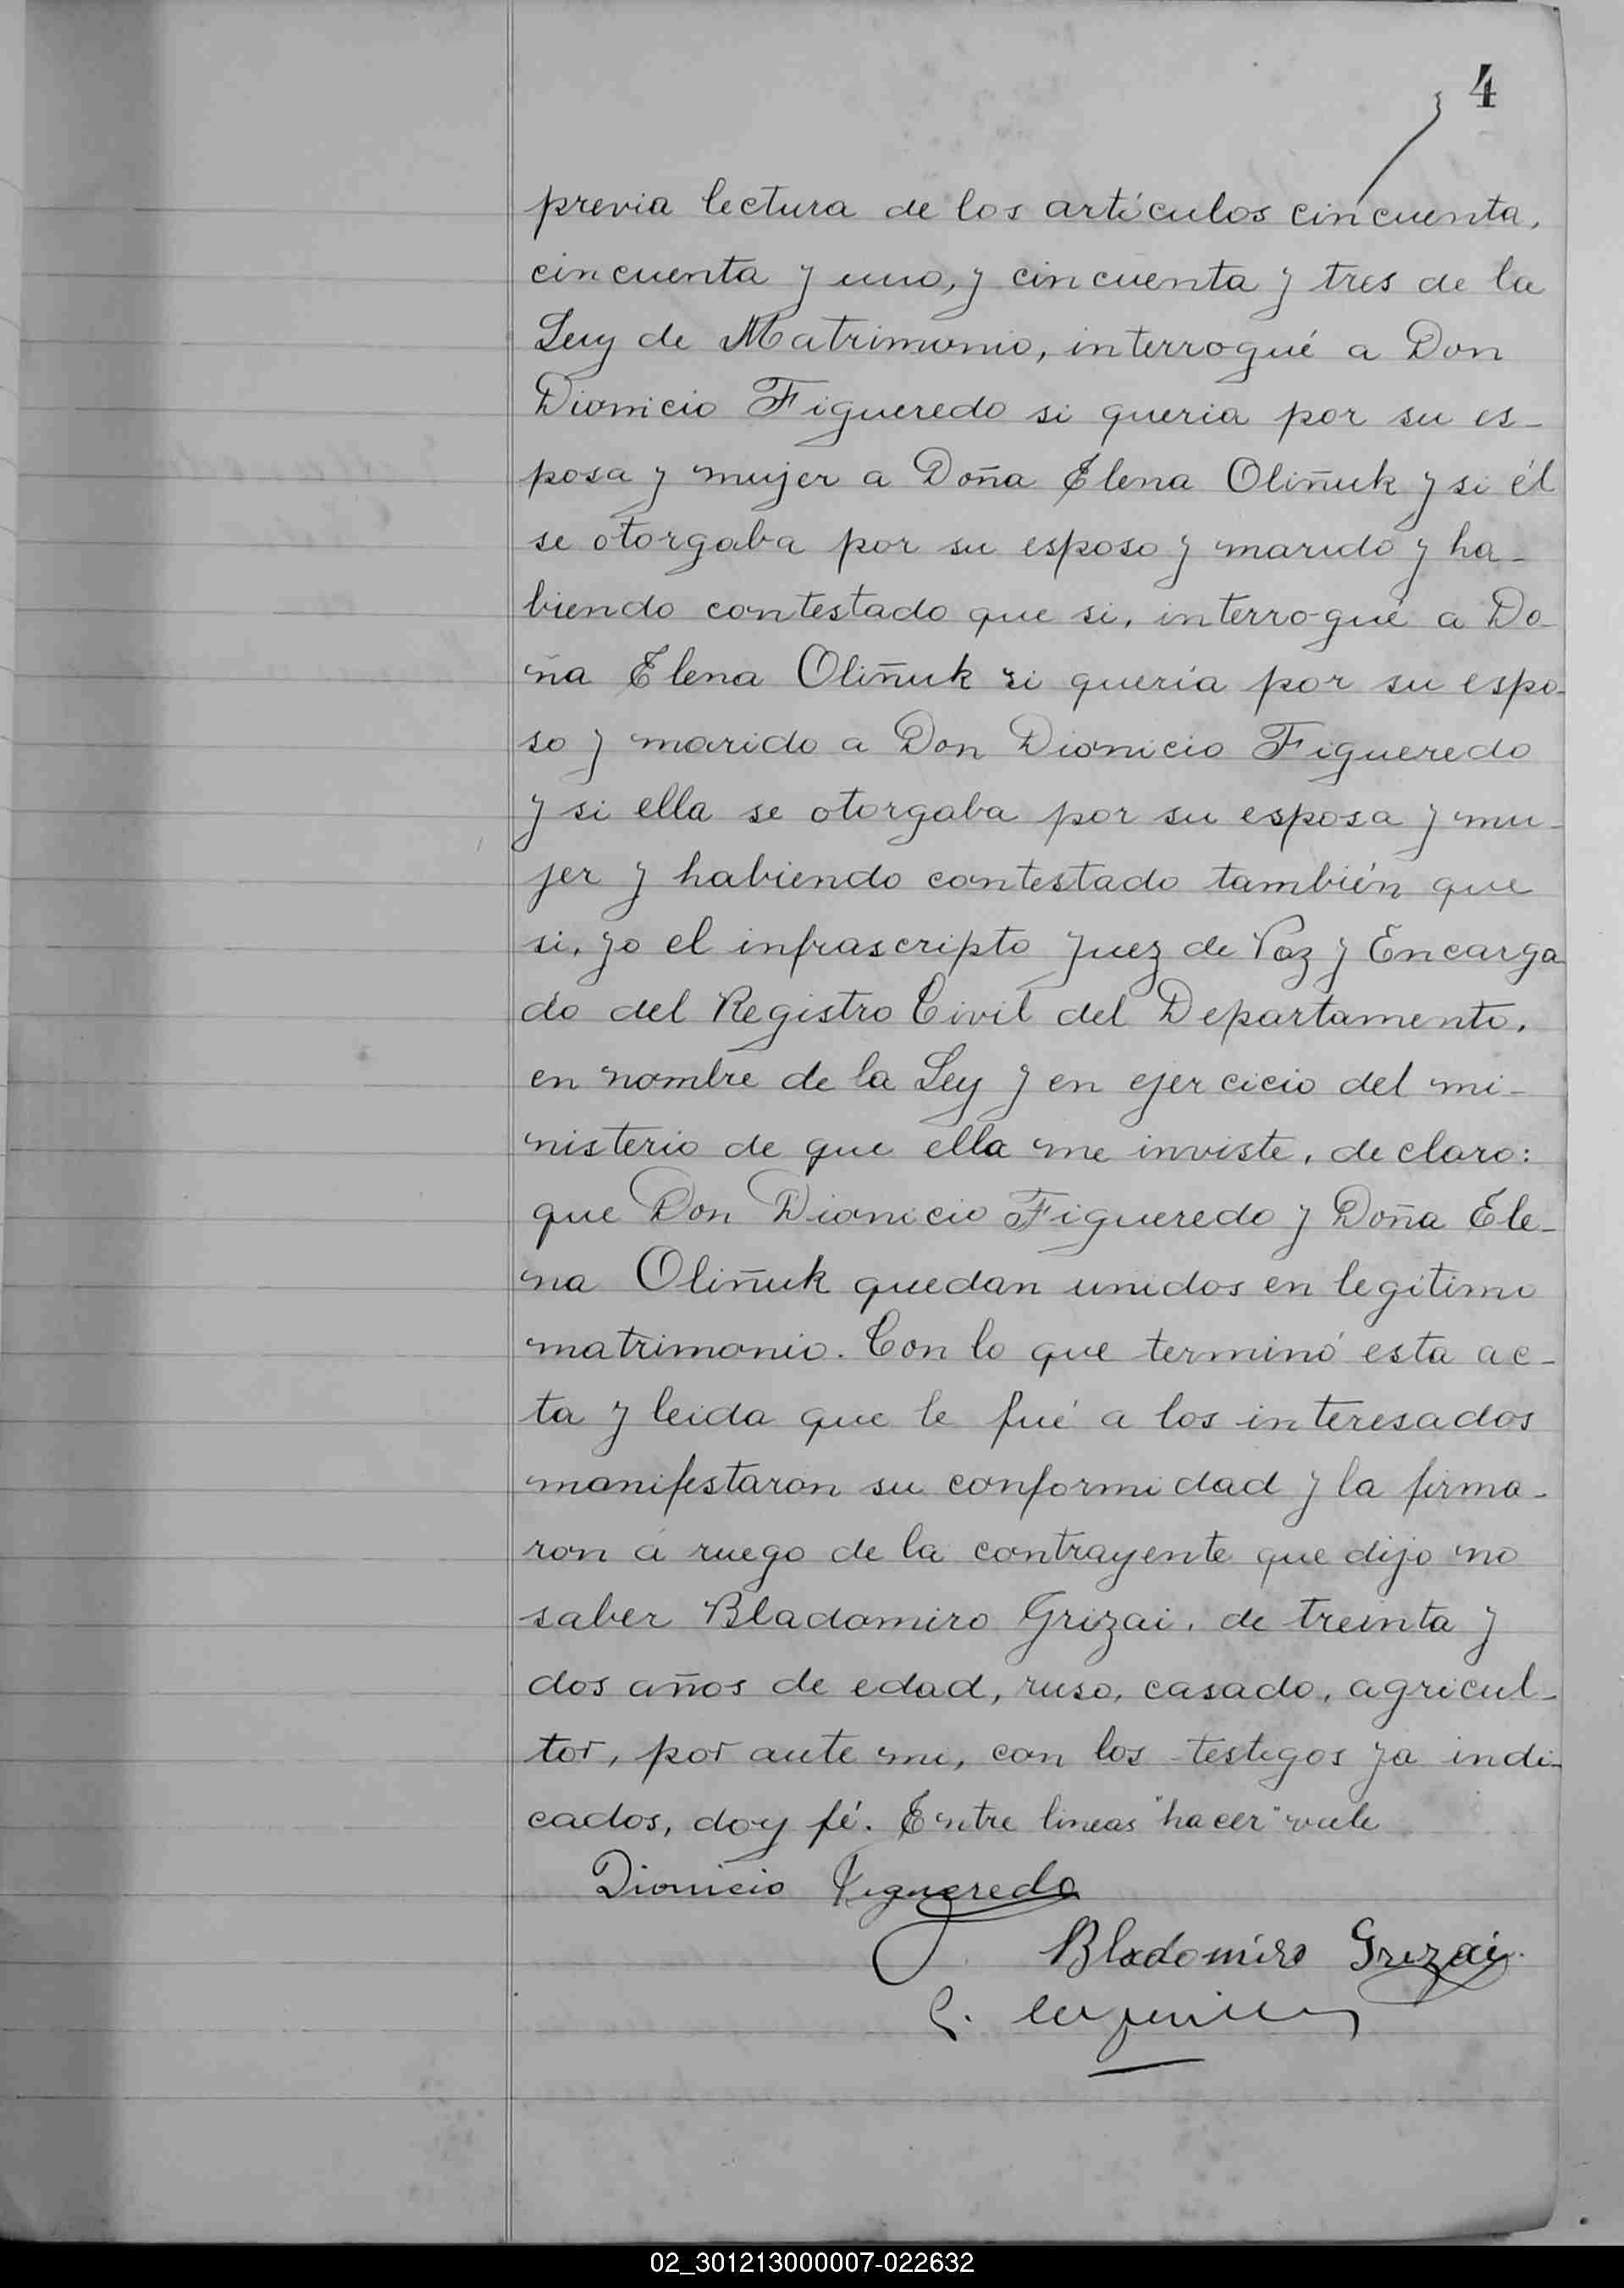 4
previa lectura de los artículos cincuenta,
cincuenta y uno, y cincuenta y tres de la
Ley de Matrimonio, interrogué a Don
Dionicio Figueredo si queria por su es-
posa y mujer a Doña Elena Oliñuk y si él
se otorgaba por su esposo y marido y ha-
biendo contestado que si, interrogué a Do-
ña Elena Oliñuk si quería por su espo-
so y marido a Don Dionicio Figueredo
y si ella se otorgaba por su esposa y mu-
jer y habiendo contestado también que
si, yo el infrascripto Juez de Paz y Encarga
do del Registro Civil del Departamento,
en nombre de la Ley y en ejercicio del mi-
nisterio de que ella me inviste, declaro:
que Don Dionicio Figueredo y Doña Ele-
na Oliñuk quedan unidos en legítimo
matrimonio. Con lo que terminó esta ac-
ta y leida que le fué a los interesados
manifestaron su conformidad y la firma-
ron a ruego de la contrayente que dijo no
saber Bladomiro Grizai, de treinta y
dos años de edad, ruso, casado, agricul-
tor, por ante mi, con los testigos ya indi-
cados, doy fé. Entre lineas "hacer" vale
Dionicio Figueredo
Bladomiro Grizai
02_301213000007-022632